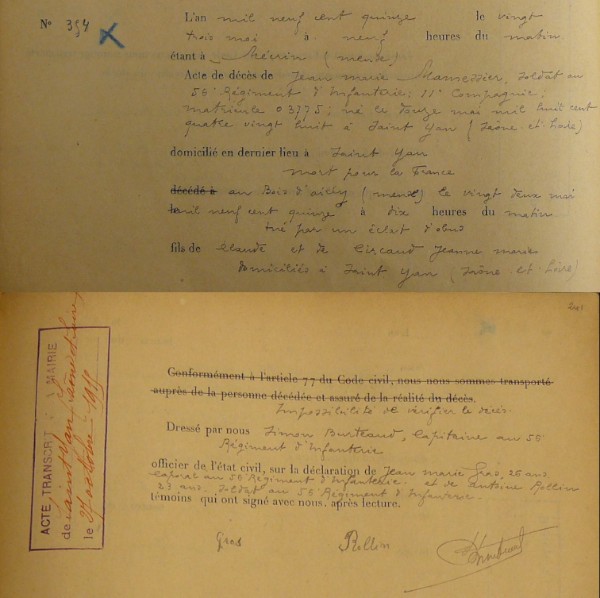 No 394
L'an mil neuf cent quinze le vingt
trois mai à neuf heures du matin
étant à Mécrin (meuse)
Acte de décès de Jean marie Mamessier, soldat au
56e Régiment d'Infanterie; 11e Compagnie;
matricule 03775; né le douze mai mil huit cent
quatre vingt huit à Saint Yan (Saône-et-Loire)
domicilié en dernier lieu à Saint Yan
mort pour la France
décédé à au Bois d'ailly (meuse) le vingt deux mai
le mil neuf cent quinze à dix heures du matin
tué par un éclat d'obus
fils de Claude et de Circaud Jeanne marie
domiciliés à Saint Yan (Saône-et-Loire)
Conformément à l'article 77 du Code civil, nous nous sommes transporté
auprès de la personne décédée et assuré de la réalité du décès.
Impossibilité de vérifier le décès.
Dressé par nous Simon Burteaud, Capitaine au 56e
Régiment d'Infanterie
officier de l'état civil, sur la déclaration de Jean marie Gras, 26 ans,
Caporal au 56e Régiment d'Infanterie. et de Antoine Rollin
23 ans, Soldat au 56e Régiment d'Infanterie.
témoins qui ont signé avec nous, après lecture.
Gras Rollin
ACTE TRANSCRIT MAIRIE
de Saint Yan
le 27 octobre 1915